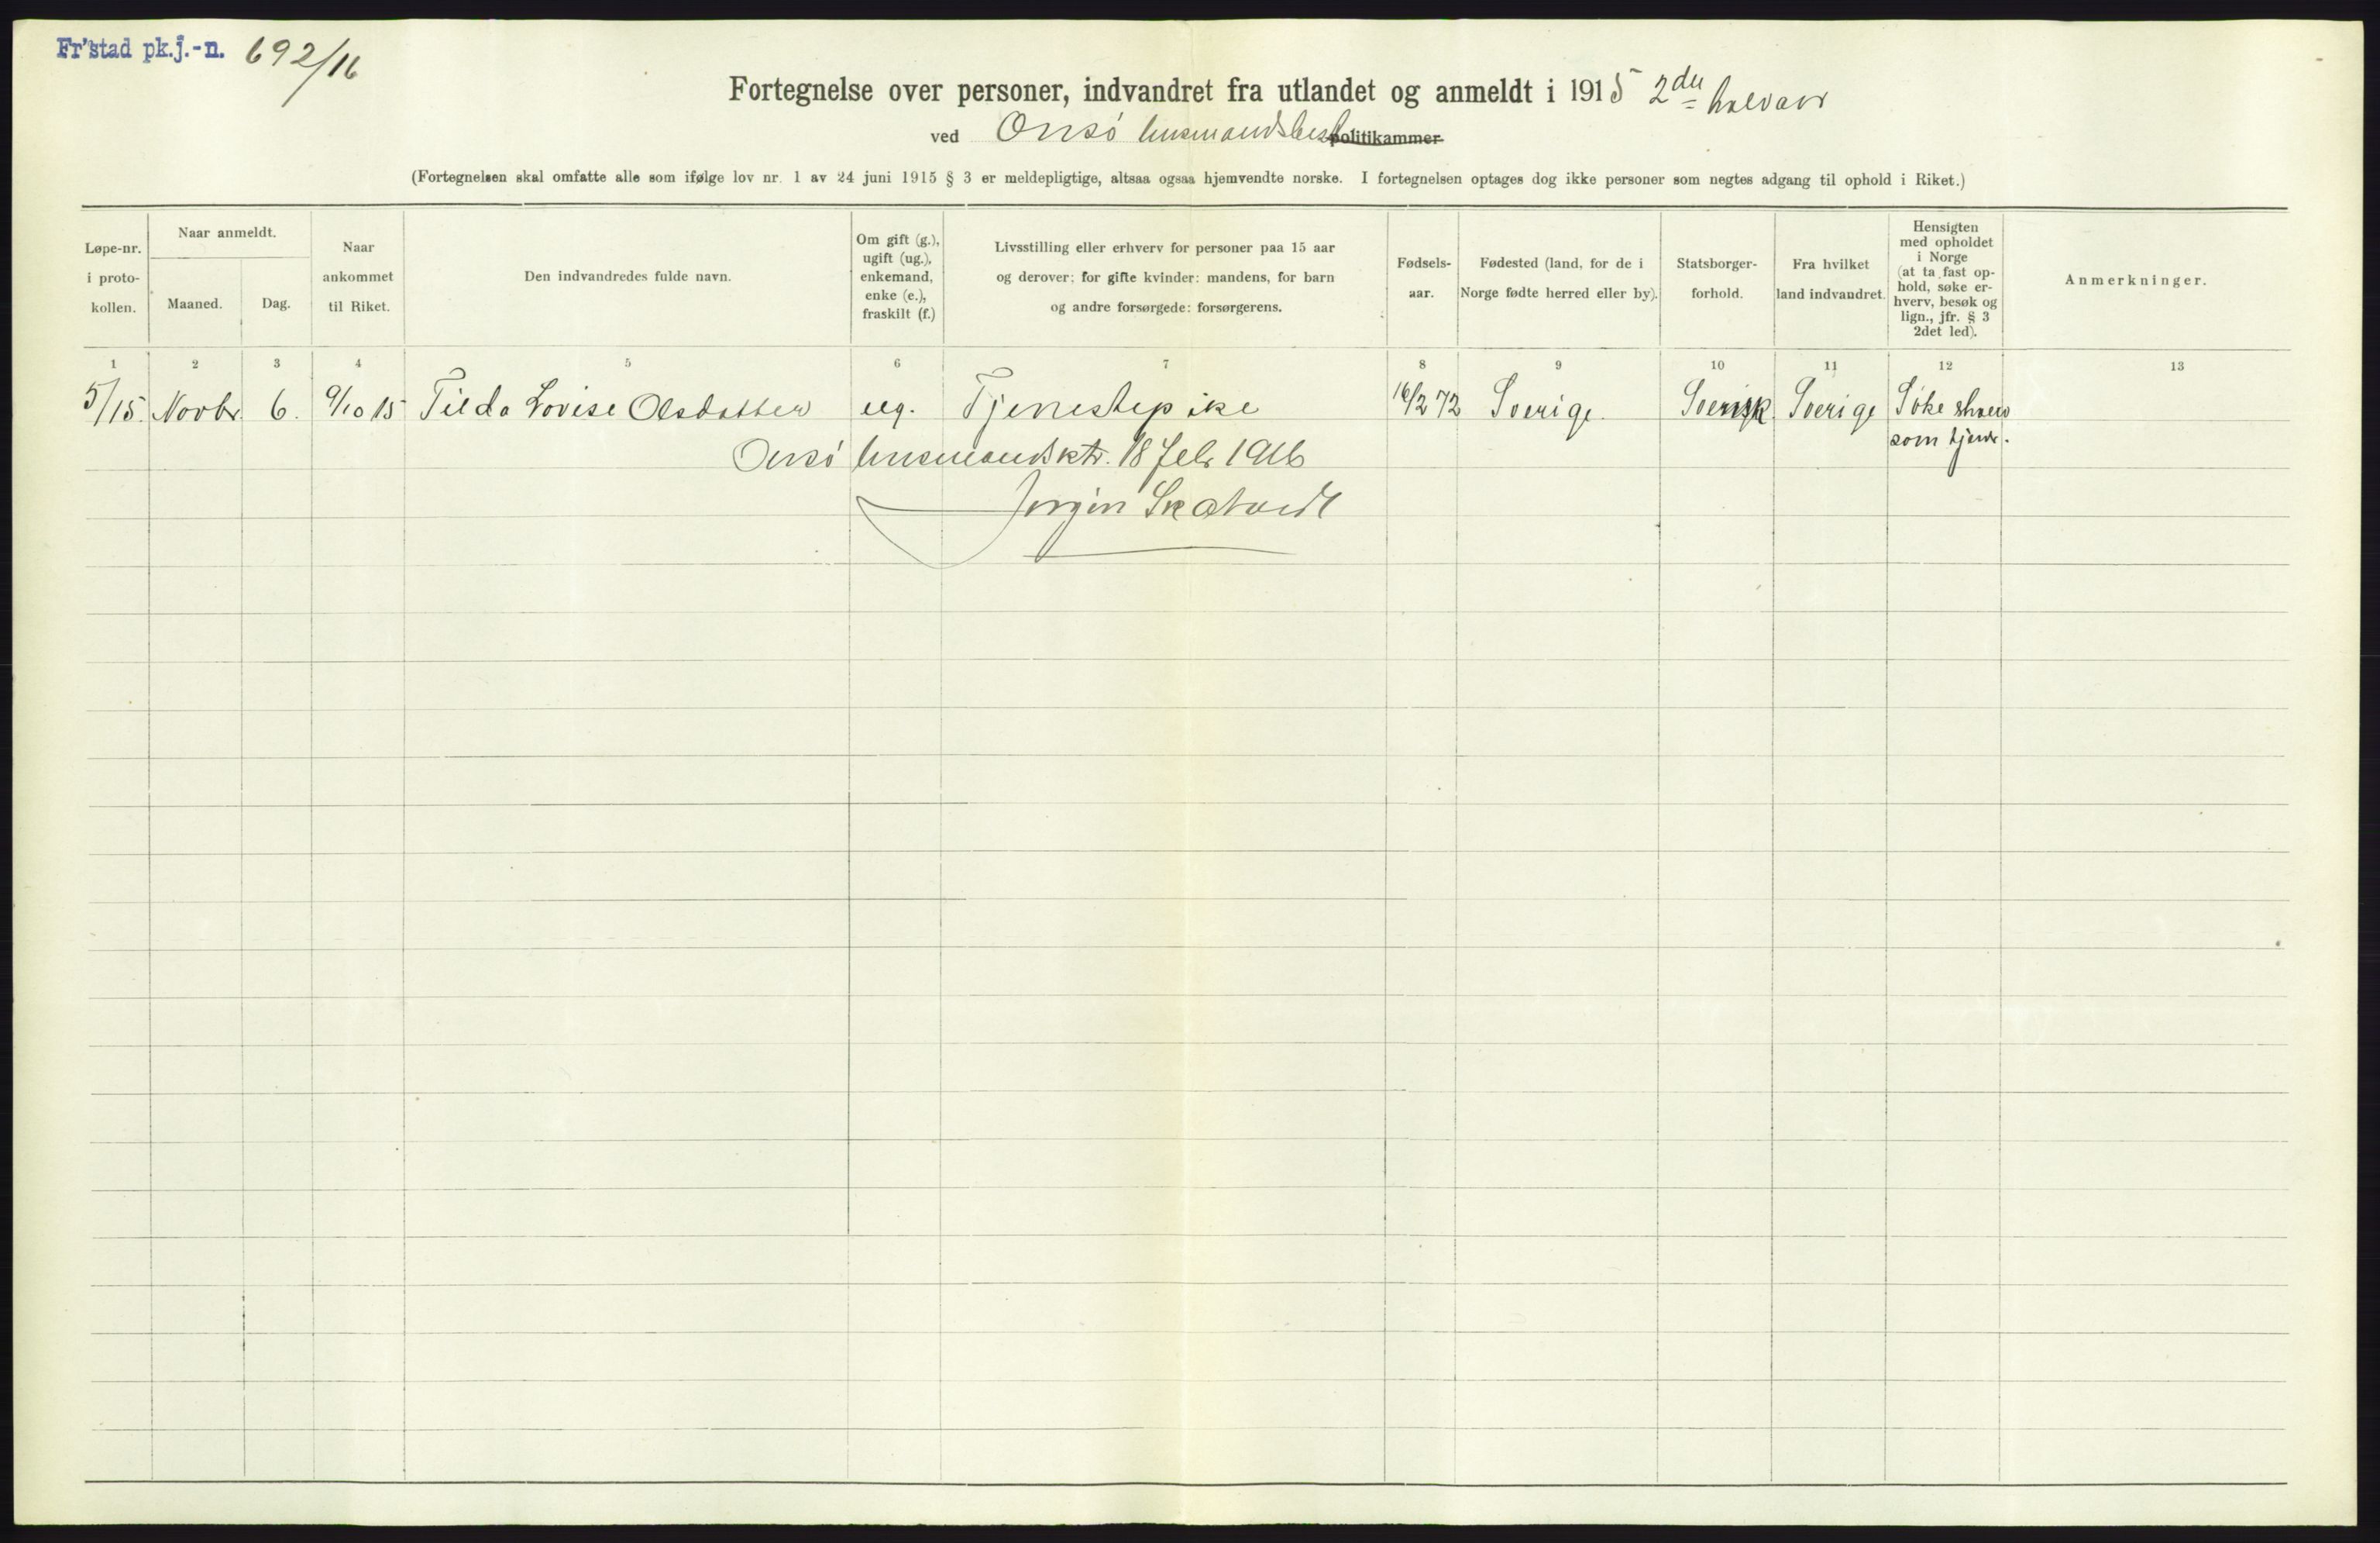 Fr'stad pk.j.-n. 692/16
Fortegnelse over personer, indvandret fra utlandet og anmeldt i 1915 2den halvaar
ved Onsø lensmandsbest politikammer
(Fortegnelsen skal omfatte alle som ifølge lov nr. 1 av 24 juni 1915 § 3 er meldepligtige, altsaa ogsaa hjemvendte norske. I fortegnelsen optages dog ikke personer som negtes adgang til ophold i Riket.)
Løpe-nr.
i proto-
kollen.
Naar anmeldt.
Maaned.
Dag.
Naar
ankommet
til Riket.
Den indvandredes fulde navn.
Om gift (g.),
ugift (ug.),
enkemand,
enke (e.),
fraskilt (f.)
Livsstilling eller erhverv for personer paa 15 aar
og derover; for gifte kvinder: mandens, for barn
og andre forsørgede: forsørgerens.
Fødsels-
aar.
Fødested (land, for de i
Norge fødte herred eller by).
Statsborger-
forhold.
Fra hvilket
land indvandret.
Hensigten
med opholdet
i Norge
(at ta fast op-
hold, søke er-
hverv, besøk og
lign., jfr. § 3
2det led).
Anmerkninger.
1 2 3 4 5 6 7 8 9 10 11 12 13
5/15. Novbr. 6. 9/10 15 Tilda Lovise Olsdatter ug. Tjenestepike 16/2 72 Sverige. Svensk Sverige Søke
som tjen.
Onsø lensmandsktr. 18 Febr 1916